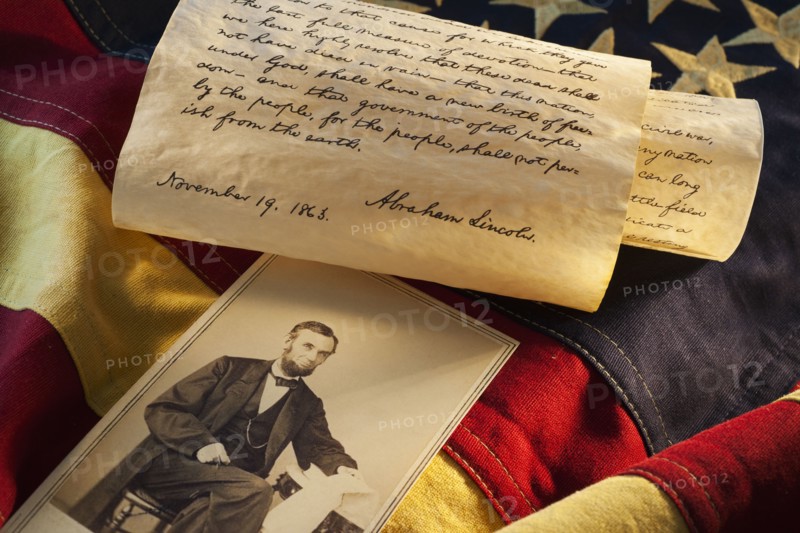 the last full measure of devotion—that
we here highly resolve that these dead shall
not have died in vain—that this nation,
under God, shall have a new birth of free-
dom—and that government of the people,
by the people, for the people, shall not per-
ish from the earth.
November 19. 1863.
Abraham Lincoln.
civil war,
any nation
can long
the field
PHOTO12